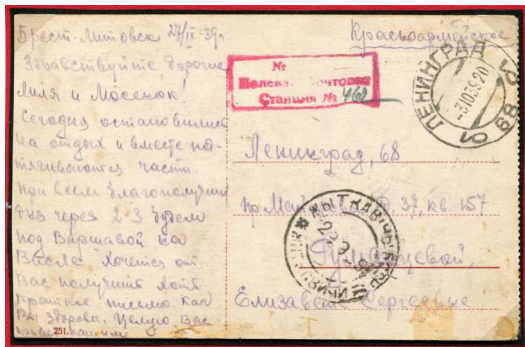 Брест-Литовск 27/IX-39г.
Здравствуйте, дорогие
Лиля и Мосенок!
Сегодня остановились
на отдых и вместе под-
тягиваются части.
При всем благополучии
через 2-3 будем
под Варшавой на
Висле. Хочется от
Вас получить хотя
краткое письмо как
Вы здоровы. Целую Вас
251.
Красноармейское
№
Полевая Почтовая
Станция № 462
ЛЕНИНГРАД
-3.10.39.20
Ленинград, 68
пр. 37, кв. 157
Елизавете Сергеевне